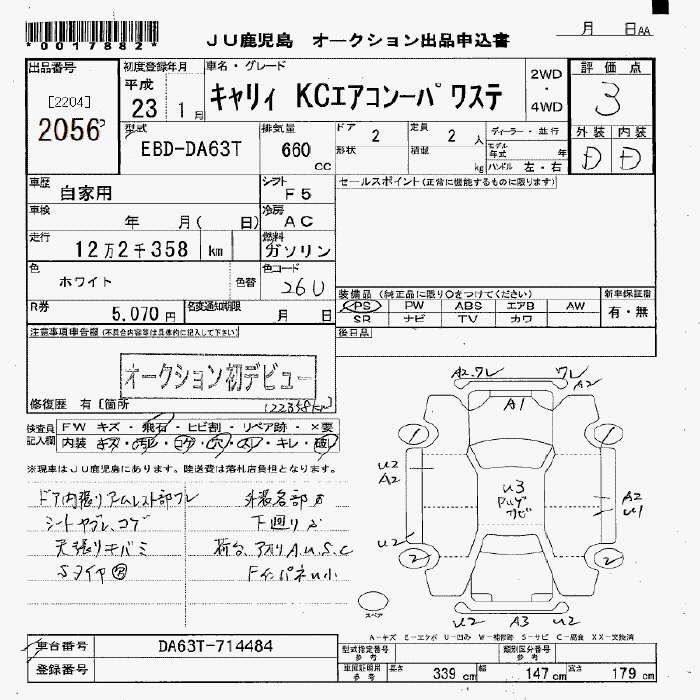 *0017882*
JU鹿児島 オークション出品申込書
月 日AA
出品番号
[2204]
2056
初度登録年月
平成
23 1月
車名・グレード
キャリィ KCエアコンーパワステ
2WD
・
4WD
評価点
3
外装 内装
D D
型式
EBD-DA63T
排気量
660
cc
ドア 2
形状
定員 2 人
積載 kg
ディーラー・並行
モデル年式 年
ハンドル 左・右
車歴
自家用
シフト
F5
セールスポイント(正常に機能するものに限ります)
車検
年 月( 日)
冷房
AC
走行
12万2千358 km
燃料
ガソリン
色
ホワイト
色替
色コード
26U
装備品(純正品に限り○をつけてください)
PS PW ABS エアB AW
SR ナビ TV カワ
新車保証書
有・無
R券
5,070円
名変通知期限
月 日
後日品
注意事項車告欄(不具合内容等は具体的に記入して下さい)
オークション初デビュー
修復歴 有[箇所
(122358km)
検査員記入欄
FW キズ・飛石・ヒビ割・リペア跡・×要
内装 キズ・汚レ・コゲ・穴・スレ・キレ・破レ
※現車はJU鹿児島にあります。陸送費は落札店負担となります。
ドア内張りアムレスト部フレ
シートヤブレ、コゲ
天張りキバミ
外装各部
下廻り
荷台、アオリA.U.S.C
FインパネU小
A2.ワレ
ワレ
A2
A1
1
1
U2
A2
U3
A2
U1
U2
2
2
U2
A3
U2
スペア
A-キズ E-エクボ U-凹み W-補修跡 S-サビ C-腐食 XX-交換済
車台番号
DA63T-714484
登録番号
型式指定番号
参考
類別区分番号
参考
車庫証明用
参考
長さ 339 cm
幅 147 cm
高さ 179 cm